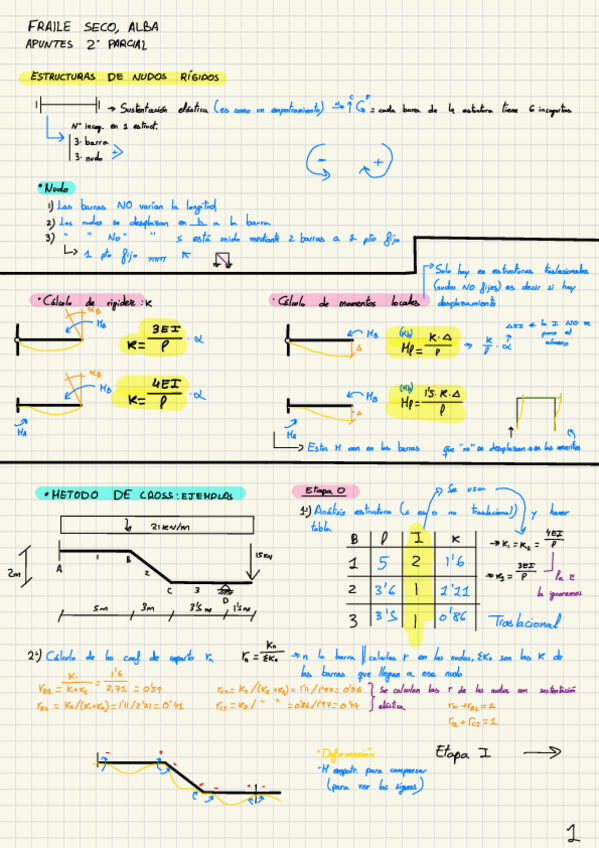 FRAILE SECO, ALBA
APUNTES 2º PARCIAL
ESTRUCTURAS DE NUDOS RÍGIDOS
→ Sustentación elástica (es como un empotramiento) → = cada barra de la estructura tiene 6 incognitas
Nº incog. en 1 estruct.
3· barra
3· nudo
- +
• Nudo
1) Las barras NO varían la longitud
2) Los nudos se desplazan en ⊥ a la barra
3) " " No " " si está unido mediante 2 barras a 1 pto fijo
1 pto fijo
Solo hay en estructuras traslacionales
(nudos NO fijos) es decir si hay
desplazamiento
• Cálculo de rigidez: K
• Cálculo de momentos locales
αB
MB
K = 3EI/l · α
MB
Δ
Ml = K·Δ/l → K/l · α
αB
MB
MA
K = 4EI/l · α
MB
Δ
Ml = 1'5·K·Δ/l
Estos M van en las barras que "no" se desplazan
• METODO DE CROSS: EJEMPLOS
Etapa 0
Se usan
1º) Análisis estructura (si es o no traslacional) y hacer
tabla
21KN/m
15KN
2m
A 1 B 2 C 3 D
5m 3m 3'5m 1'5m
B l I K
1 5 2 1'6
2 3'6 1 1'11
3 3'5 1 0'86
→ K1 = K2 = 4EI/l
→ K3 = 3EI/l
la E
la ignoramos
Traslacional
2º) Cálculo de los coef de reparto rn rn = Kn/ΣKn → n la barra || calculas r en los nudos, ΣKn son las K de
las barras que llegan a ese nudo
rB1 = K1/(K1+K2) = 1'6/2,71 = 0'59
rB2 = K2/(K1+K2) = 1'11/2'71 = 0'41
rC2 = K2/(K2+K3) = 1'11/1'97 = 0'56
rC3 = K3/ " " = 0'86/1'97 = 0'44
Se calculan las r de los nudos con sustentación
elástica
rB1 + rB2 = 1
rC2 + rC3 = 1
• Deformación
- M empotr. para compensar
(para ver los signos)
Etapa I →
C
1